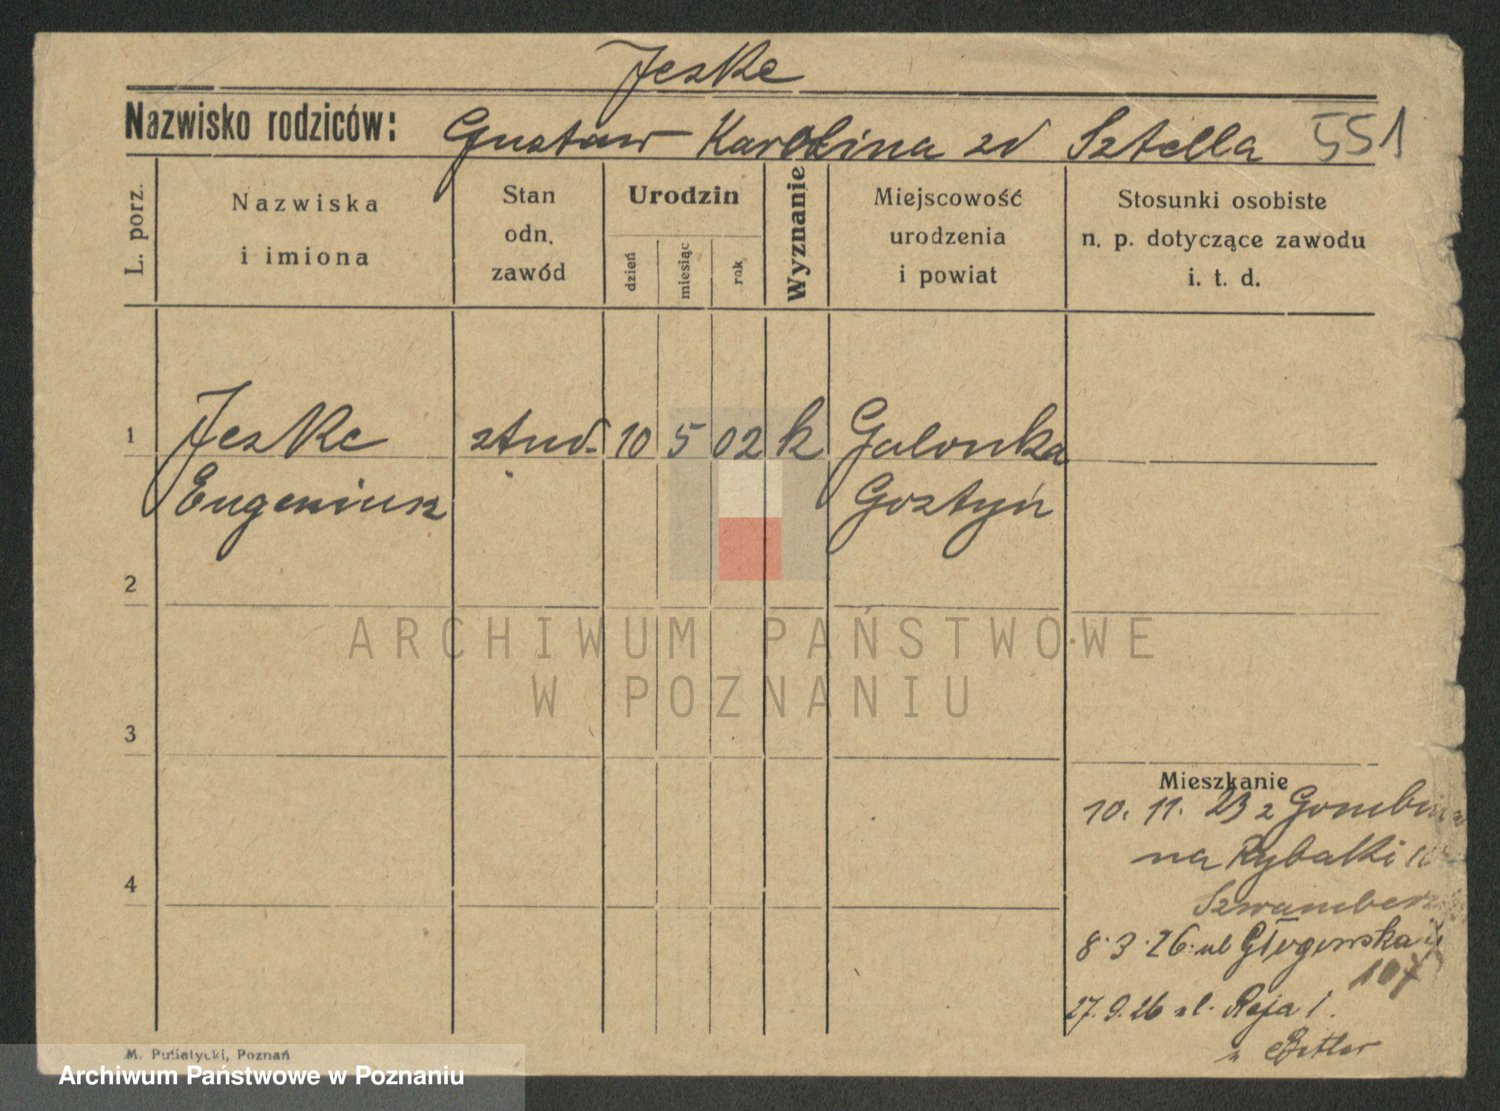 Jeske
Nazwisko rodziców: Gustaw Karolina zd Sztella 551
L. porz.
Nazwiska
i imiona
Stan
odn.
zawód
Urodzin
dzień
miesiąc
rok
Wyznanie
Miejscowość
urodzenia
i powiat
Stosunki osobiste
n. p. dotyczące zawodu
i. t. d.
1 Jeske stud. 10 5 02 k Galonka
Eugeniusz Gostyń
2
ARCHIWUM PAŃSTWOWE
W POZNANIU
3
Mieszkanie
10. 11. 23 z
na Rybaki
4
8. 3. 26. ul Głogowska
107
27. 9. 26 ul. Reja 1.
M. Putiatycki, Poznań
Archiwum Państwowe w Poznaniu